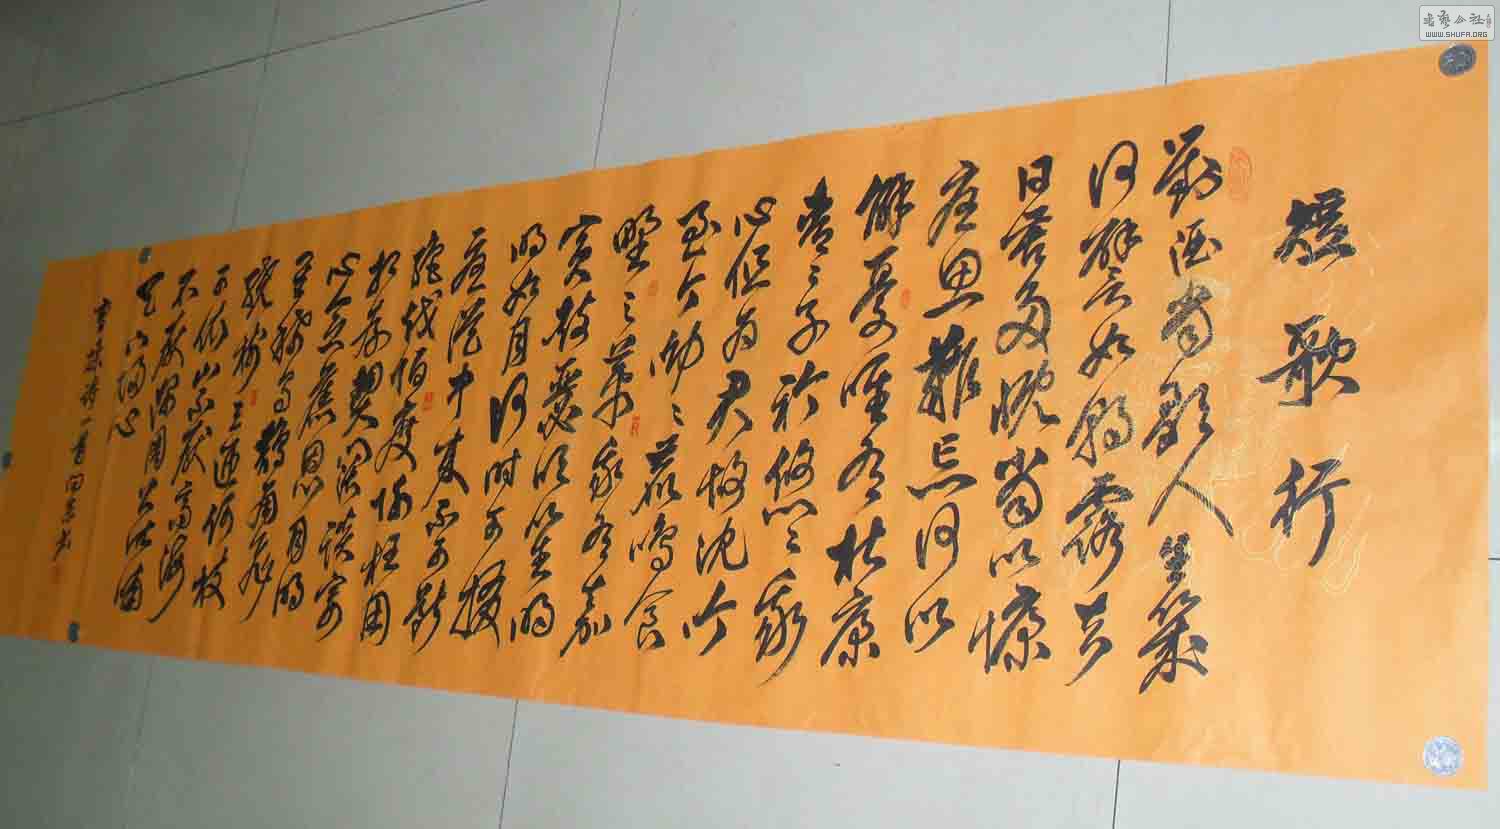 短歌行
對酒當歌人生幾
何譬如朝露去
日苦多慨當以慷
憂思難忘何以
解憂唯有杜康
青々子衿悠々我
心但为君故沈吟
至今呦々鹿鳴食
野之苹我有嘉
賓鼓瑟吹笙明
明如月何时可掇
憂從中来不可斷
越陌度阡枉用
相存契闊談宴
心念舊恩月明
星稀烏鵲南飛
繞樹三匝何枝
可依山不厭高海
不厭深周公吐哺
天下歸心
曹操詩一首
書藝公社
WWW.SHUFA.ORG